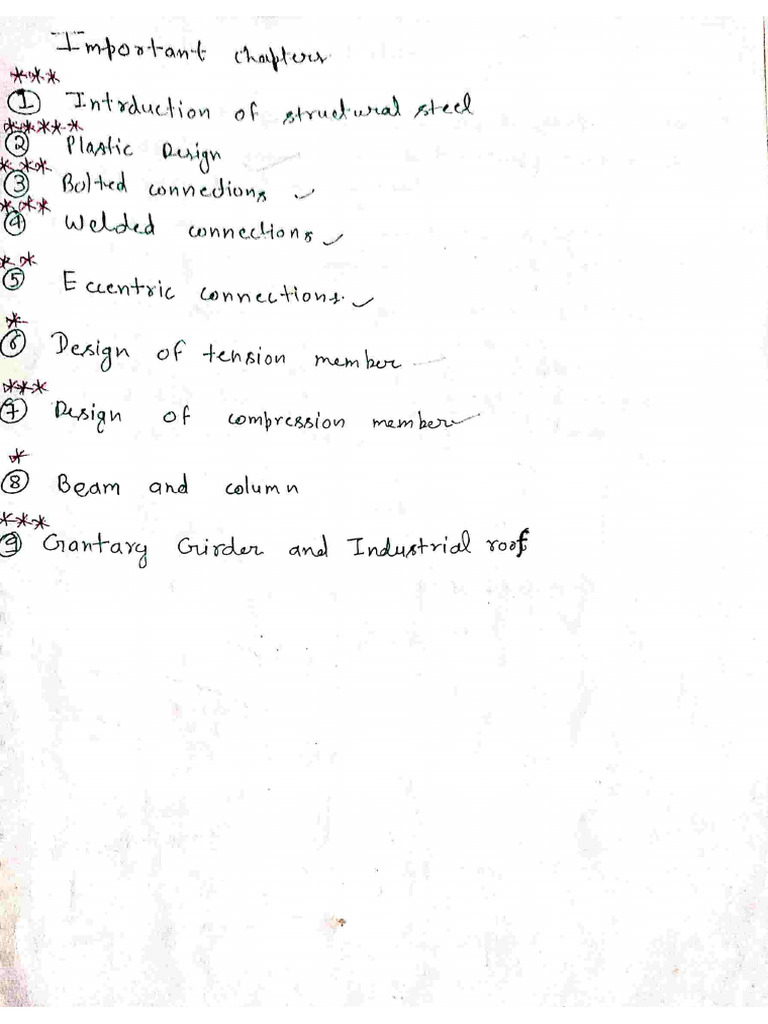 Important chapters
***
① Intrduction of structural steel
*****
② Plastic Design
***
③ Bolted connections ✓
***
④ Welded connections ✓
**
⑤ Eccentric connections. ✓
*
⑥ Design of tension member
***
⑦ Design of compression member
*
⑧ Beam and column
***
⑨ Gantary Girder and Industrial roof